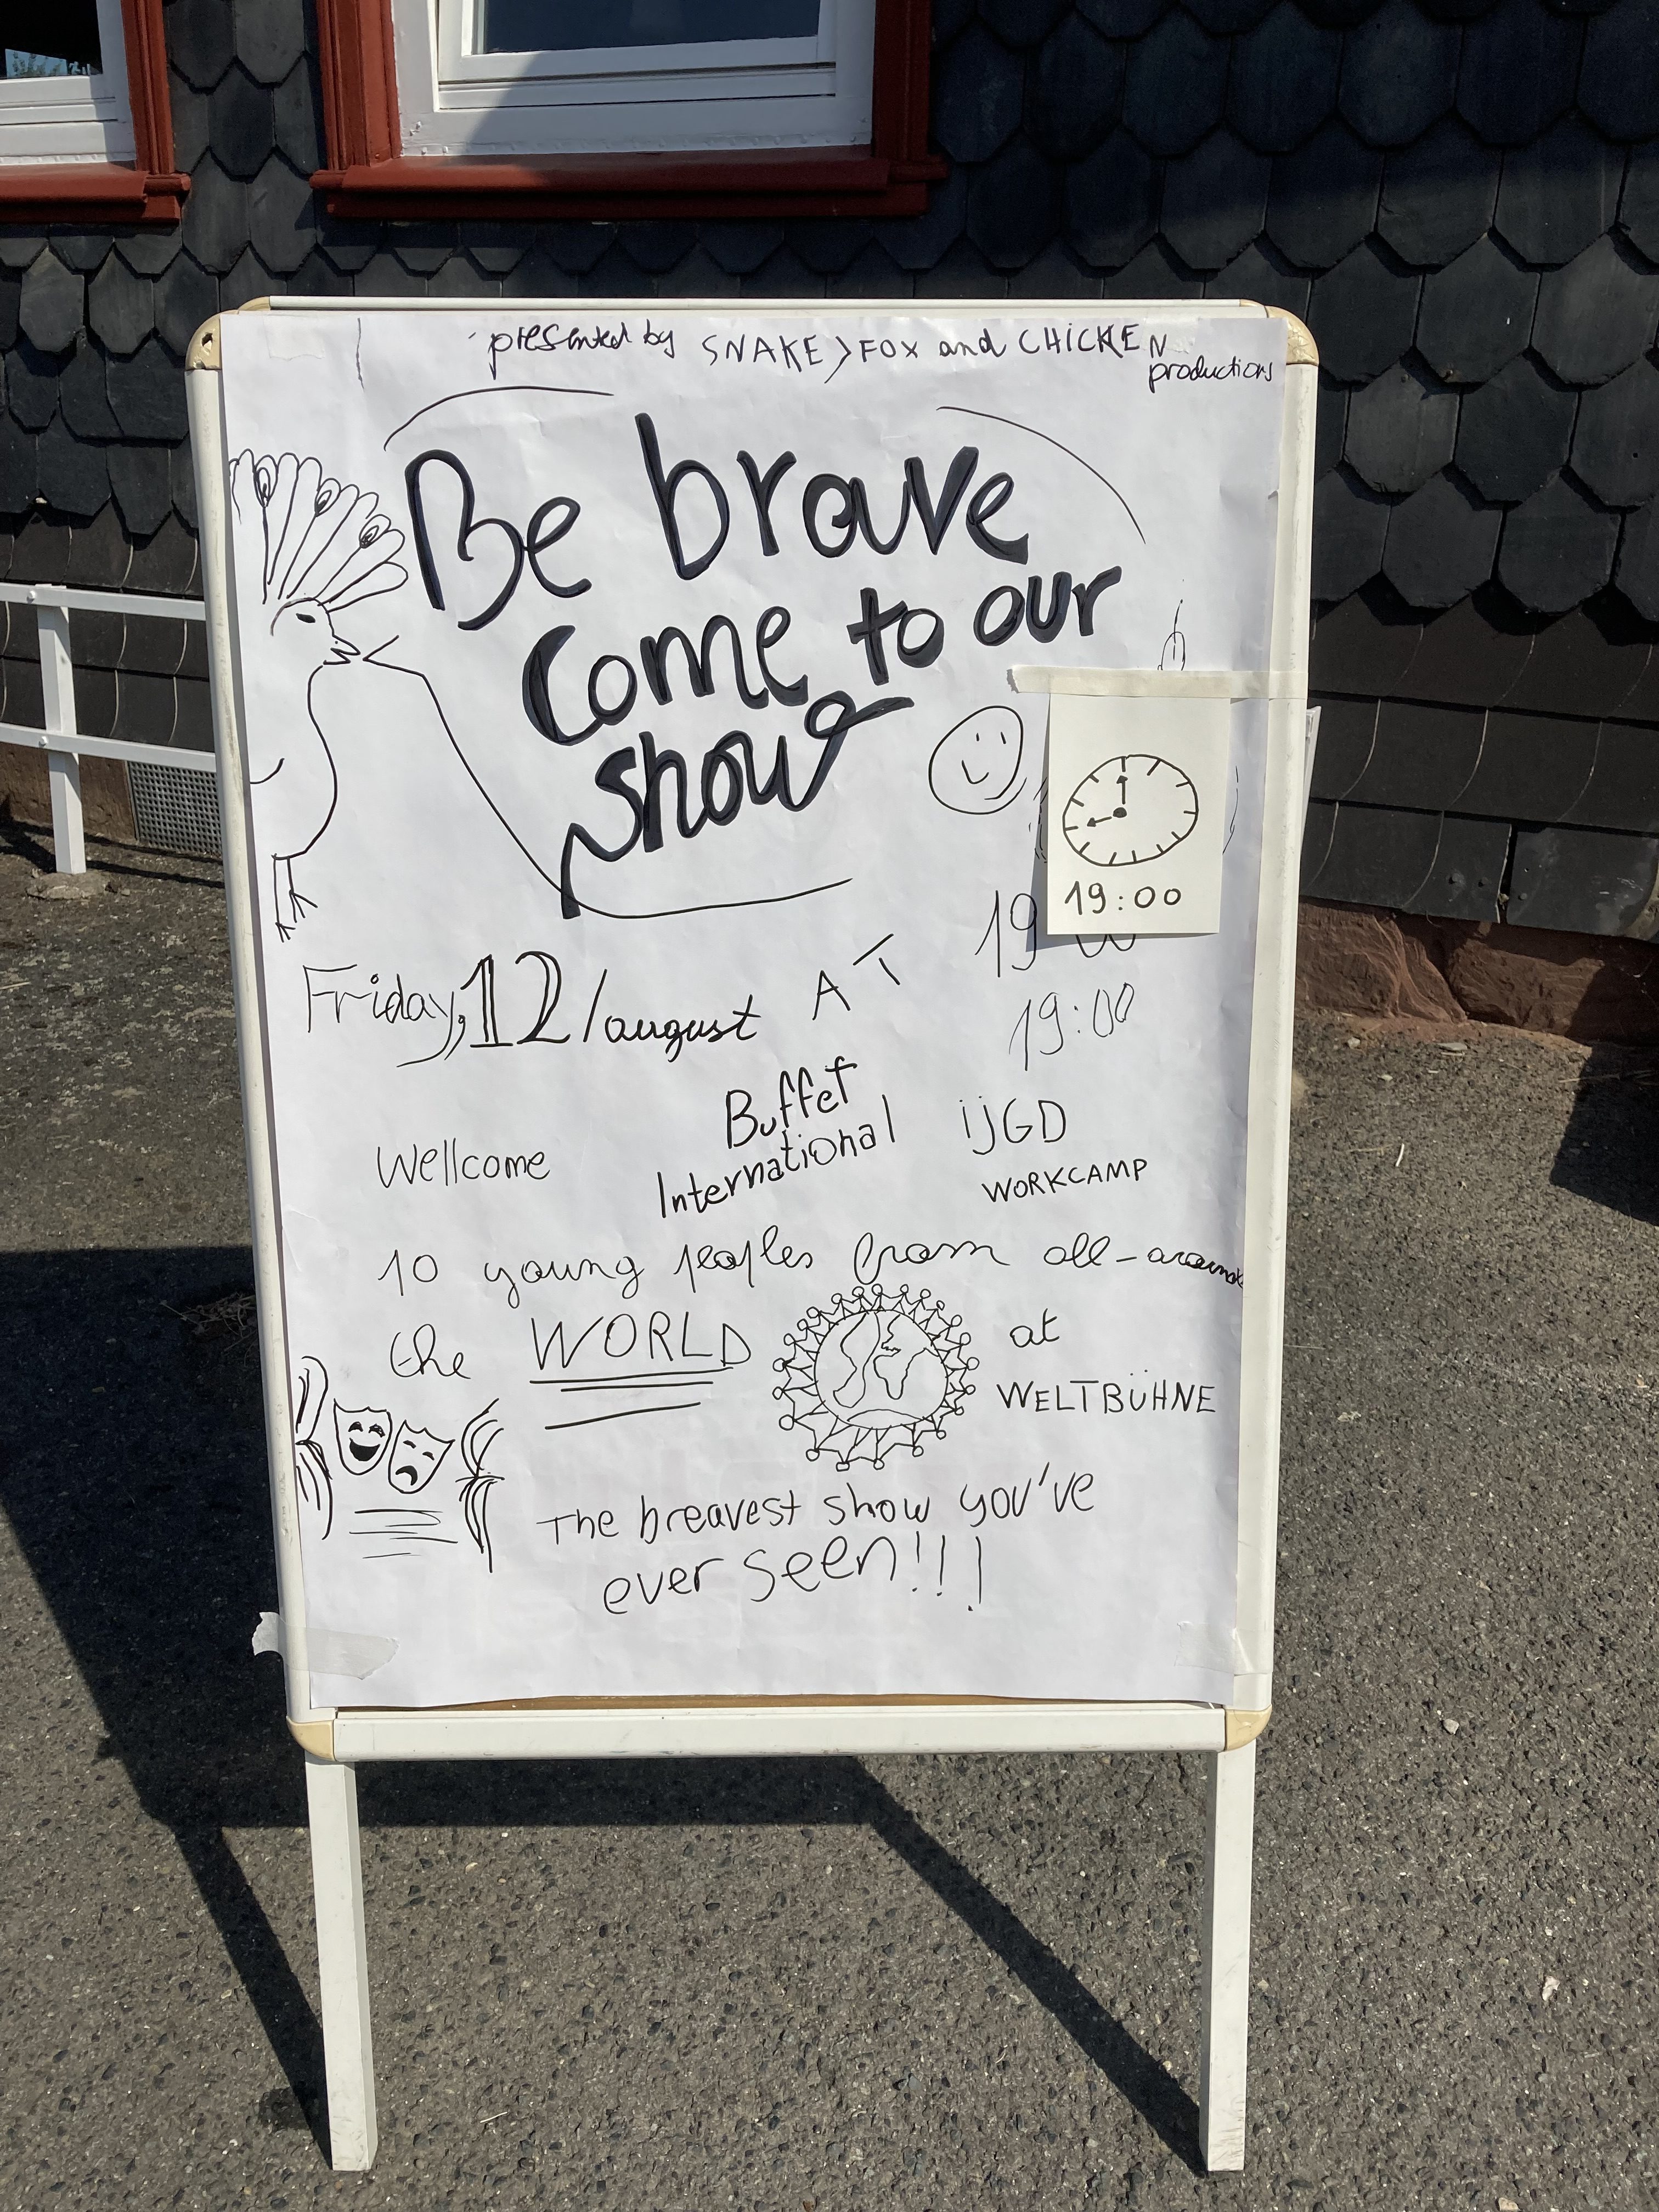 presented by SNAKE, FOX and CHICKEN
productions
Be brave
come to our
show
19:00
Friday, 12/august AT 19
19:00
Wellcome
Buffet
International
ijGD
WORKCAMP
10 young peoples from all-around
the WORLD at
WELTBÜHNE
The breavest show you've
ever seen!!!